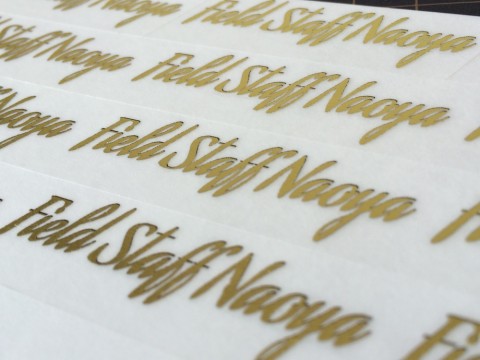 Field Staff Naoya
Staff Naoya Field Staff Naoya
Naoya Field Staff Naoya
Field Staff Naoya